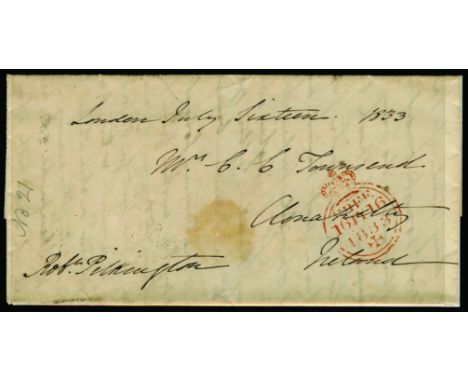 London July Sixteen 1833
Mrs. C. C. Townsend
Clonakilty
Ireland
Robt. Pilkington
FREE
16 JY 16
1833
No 21